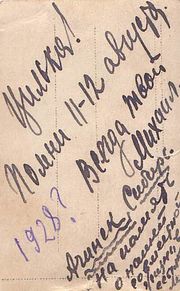 Цилька!
Помни 11-12 августа.
Всегда твой
Михаил.
1928?
Ачинск, Сибирь.
На память
о нашей